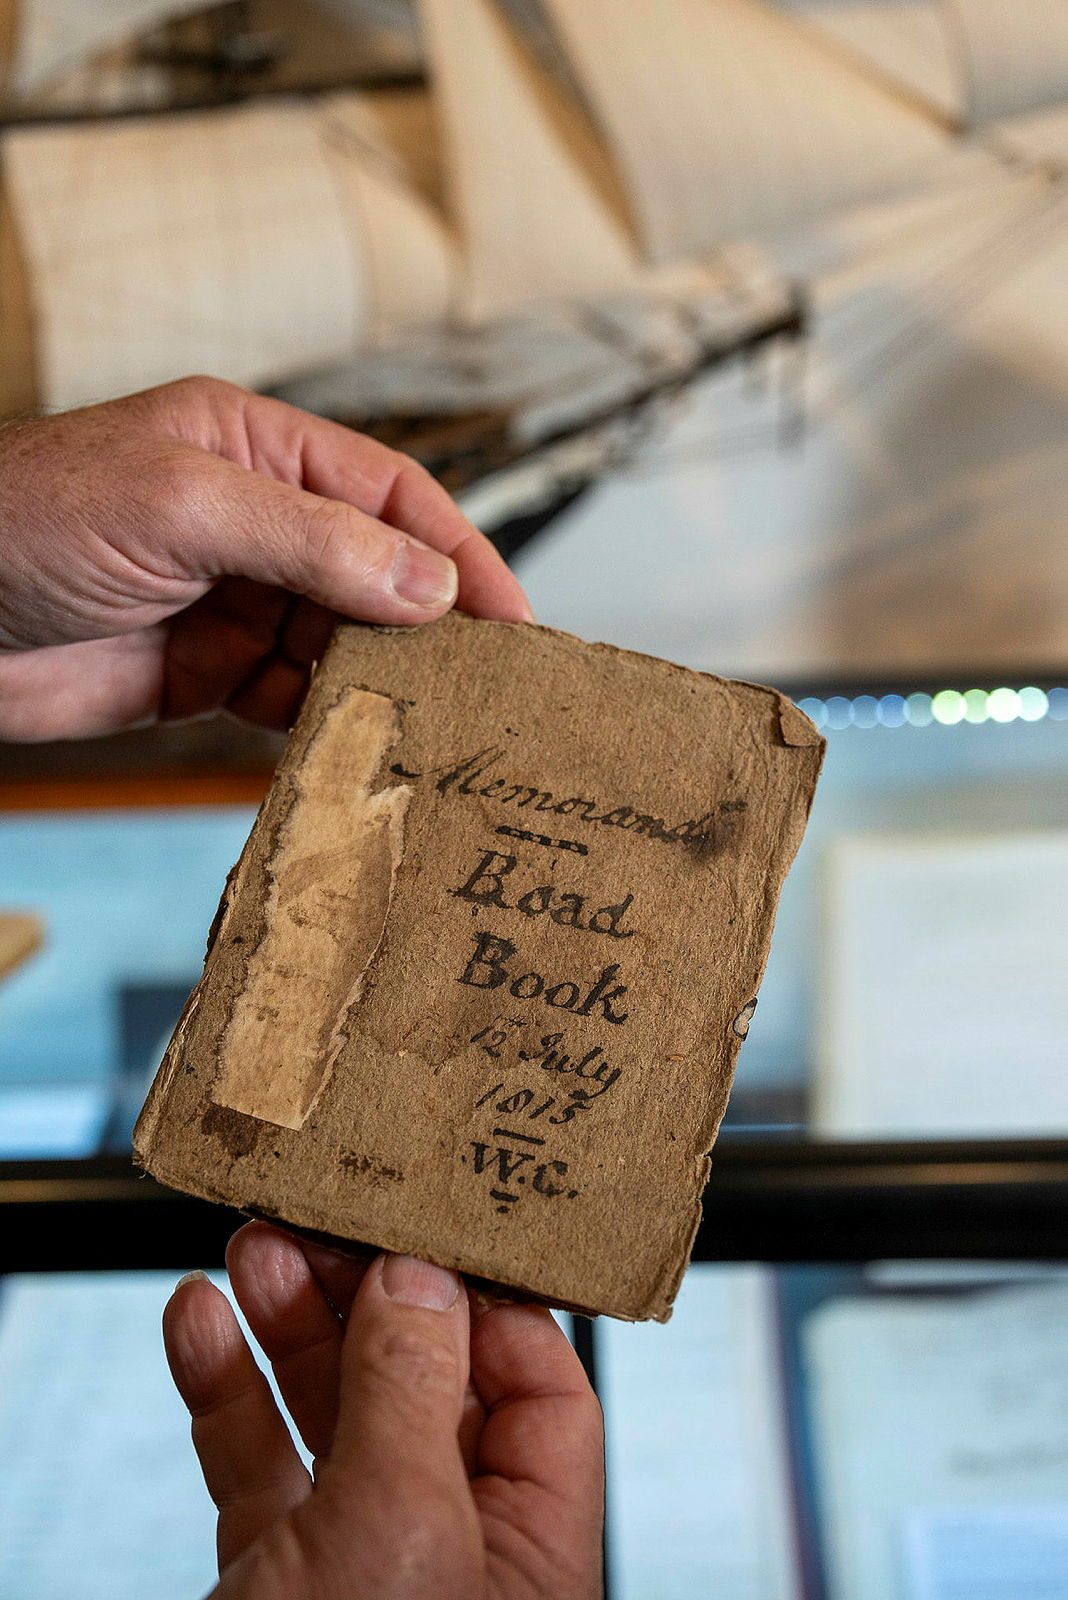 Memorandm
Road
Book
12th July
1815
W.C.